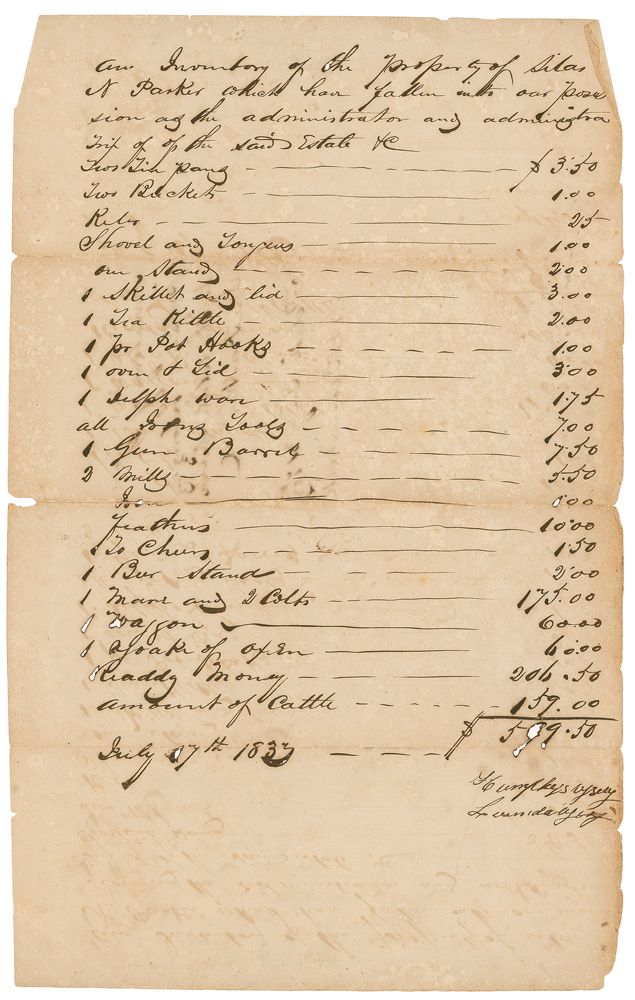 an Inventory of the Property of Silas
N Parker which have fallen into our poses
sion as the administrator and administra
trix of of the said Estate &c
Two Tin pans - $ 3.50
Two Buckets 1.00
25
Shovel and Tongues 1.00
one Stand 2.00
1 Skillet and lid 3.00
1 Tea Kittle 2.00
1 pr Pot Hooks 1.00
1 oven & Lid 3.00
1 Delph ware 1.75
all Irons Tools 7.00
1 Gun Barrel 7.50
2 Mills 5.50
Feathers 10.00
1.50
1 Bee Stand 2.00
1 Mare and 2 Colts 175.00
1 Waggon 60.00
1 Yoake of oxen 60.00
Readdy Money 206.50
Amount of Cattle 159.00
$ 599.50
July 17th 1837